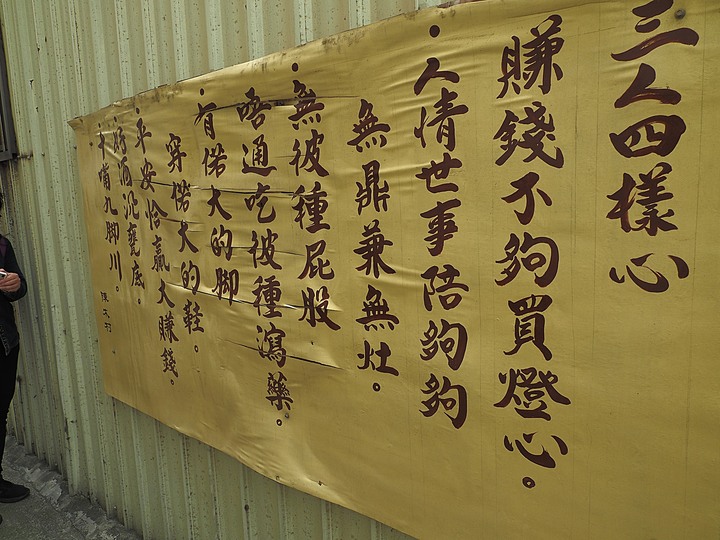 三人四樣心
賺錢不夠買燈心。
·人情世事陪夠夠
無鼎兼無灶。
·無彼種屁股
唔通吃彼種瀉藥。
·有偌大的腳
穿偌大的鞋。
·平安恰贏大賺錢。
·好酒沉甕底。
·十嘴九腳川。